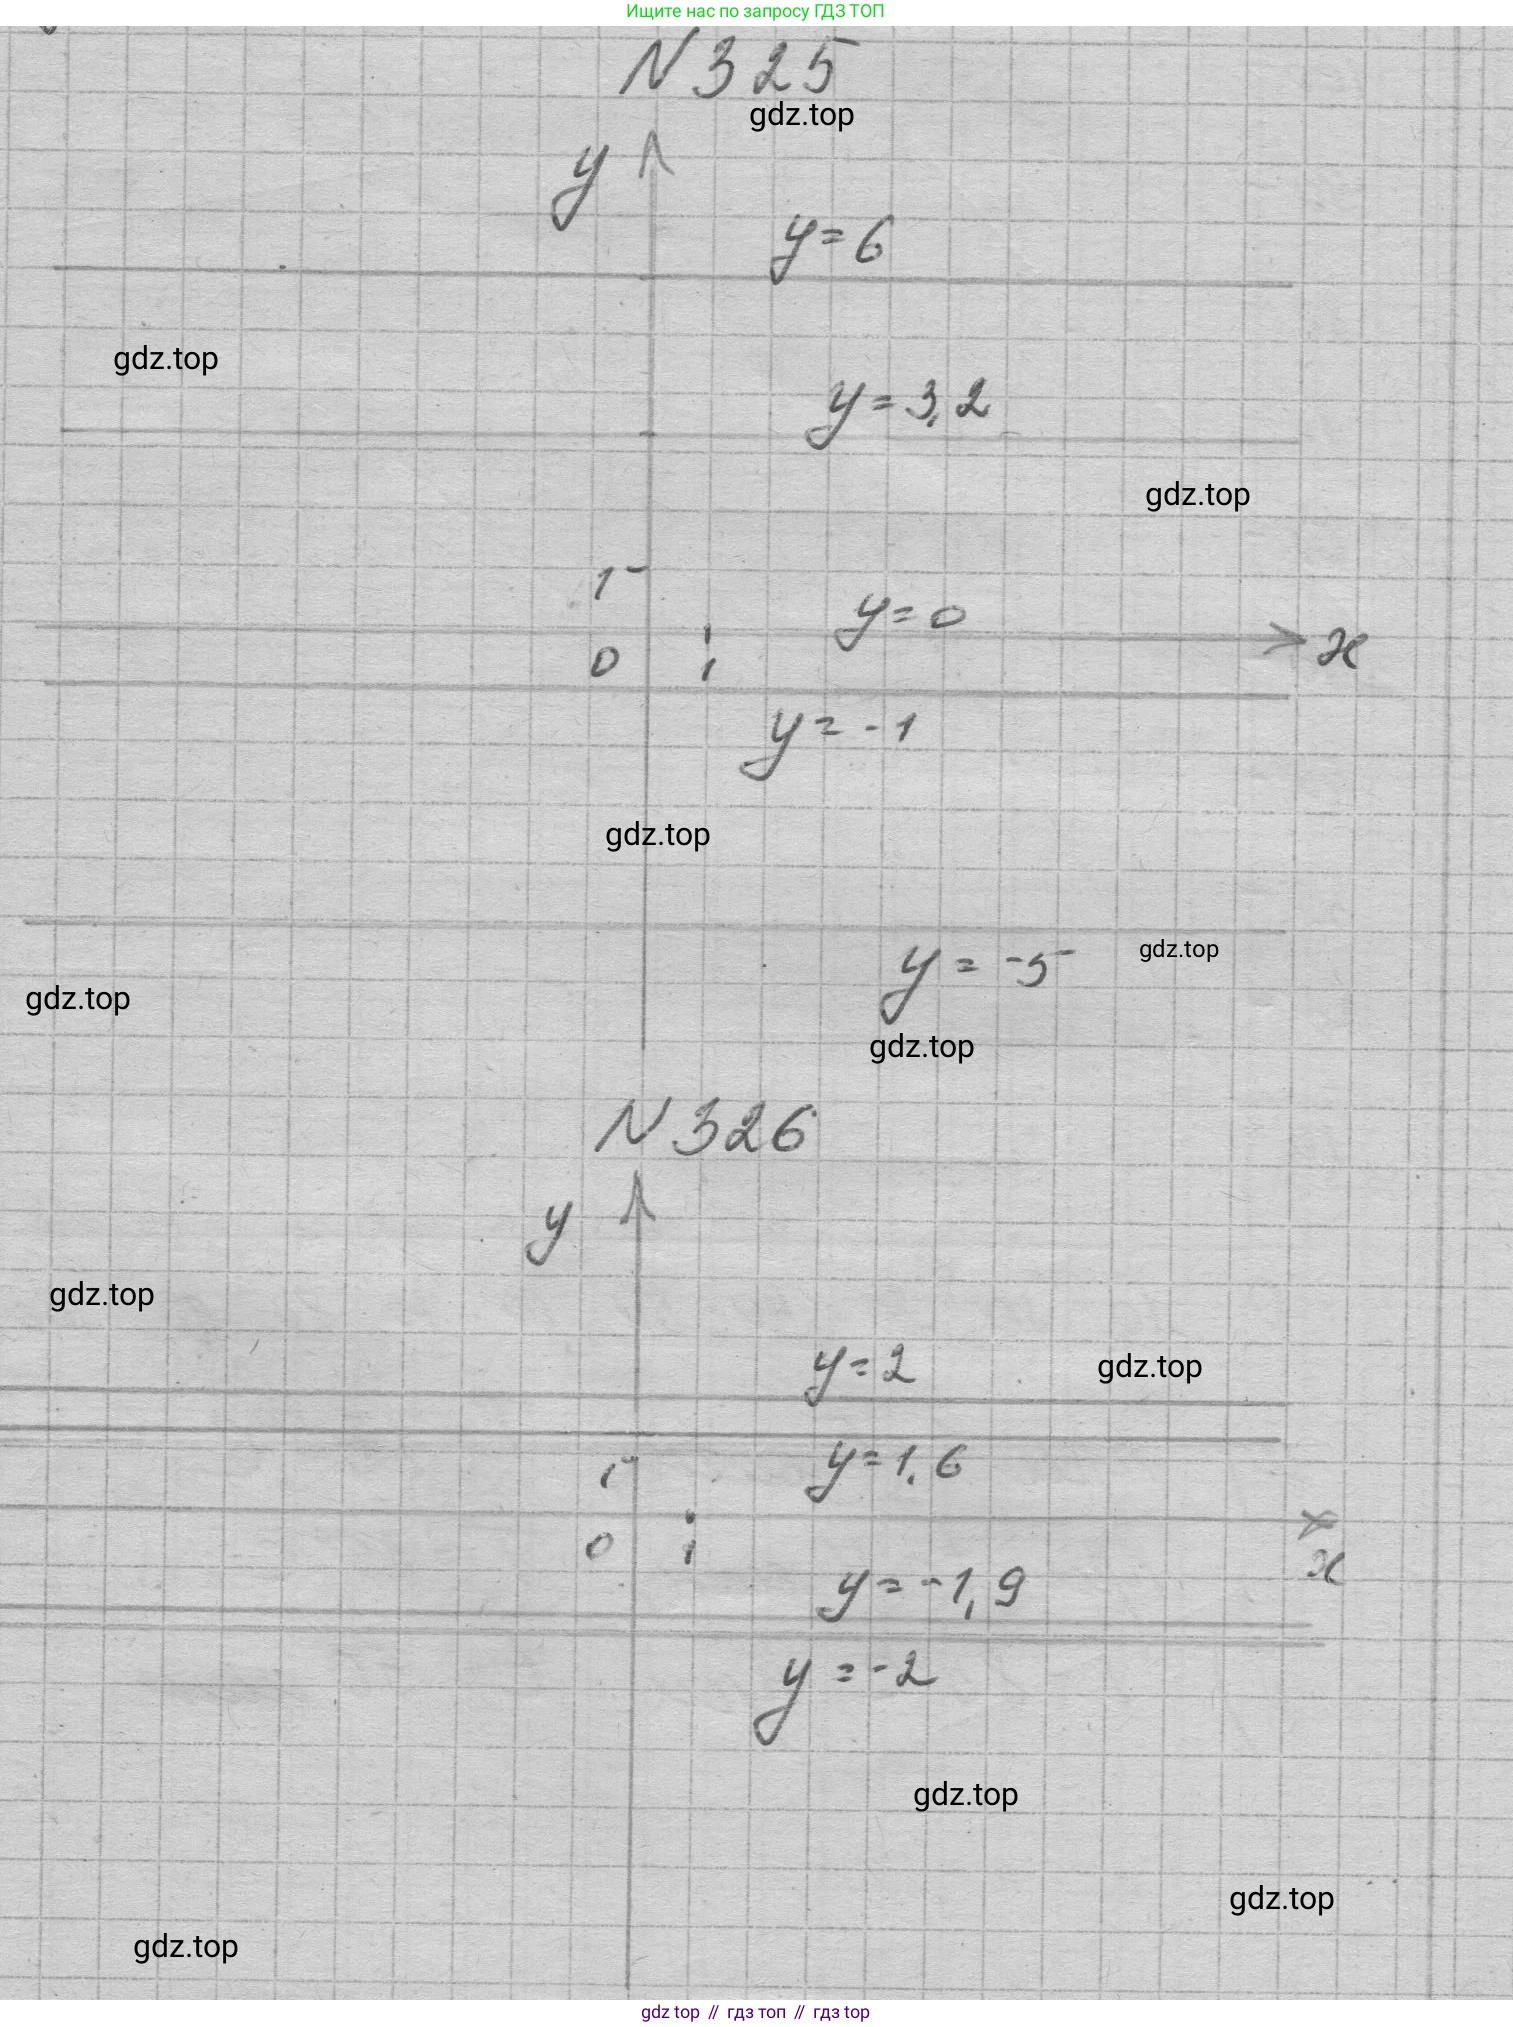 Ищите нас по запросу ГДЗ ТОП
N 325
gdz.top
y
y = 6
gdz.top
y = 3,2
gdz.top
1
y = 0
0 1 x
y = -1
gdz.top
y = -5
gdz.top
gdz.top
gdz.top
N 326
y
gdz.top
y = 2
gdz.top
y = 1,6
1
0 1
x
y = -1,9
y = -2
gdz.top
gdz.top
gdz.top
gdz top // гдз топ // гдз top